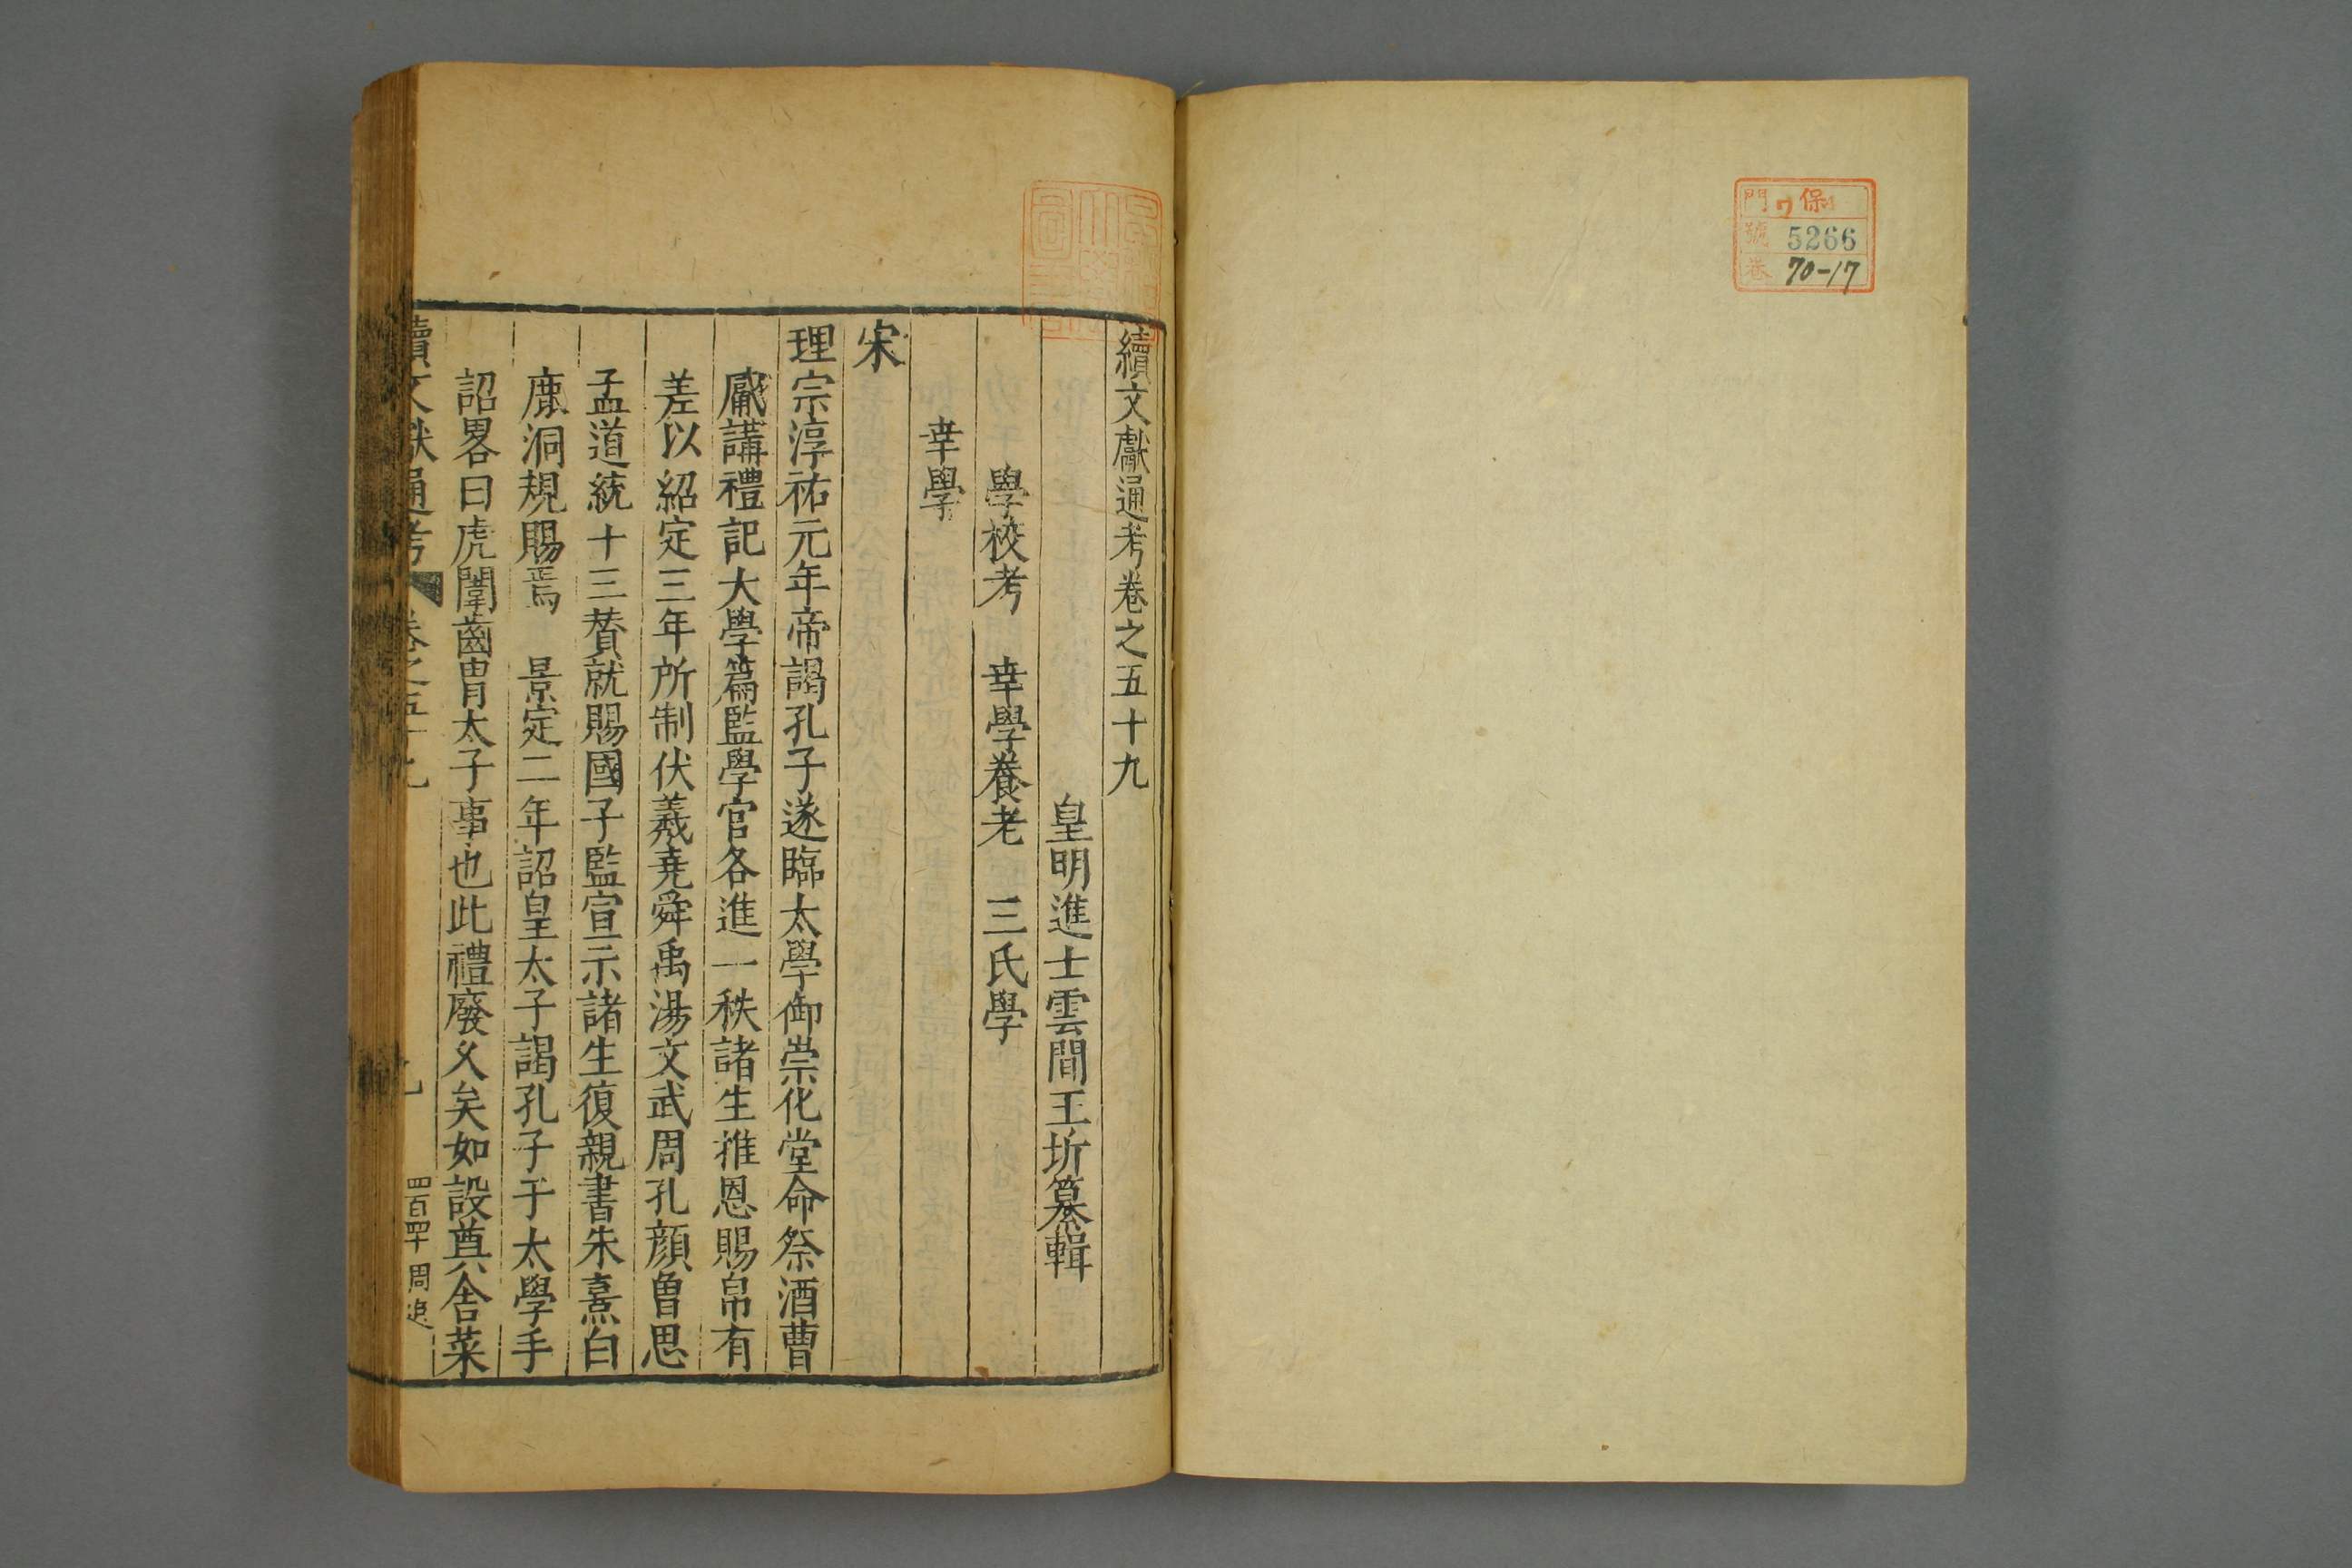 門 ワ 保
號 5266
巻 70-17
續文獻通考卷之五十九
皇明進士雲間王圻纂輯
學校考 幸學養老 三氏學
幸學
宋
理宗淳祐元年帝謁孔子遂臨太學御崇化堂命祭酒曹
觱講禮記大學篇監學官各進一秩諸生推恩賜帛有
差以紹定三年所制伏羲堯舜禹湯文武周孔顏曾思
孟道統十三賛就賜國子監宣示諸生復親書朱熹白
鹿洞規賜焉 景定二年詔皇太子謁孔子于太學手
詔畧曰虎闈齒胄太子事也此禮廢乆矣如設奠舍菜
續文獻通考 卷之五十九
四百四十 周